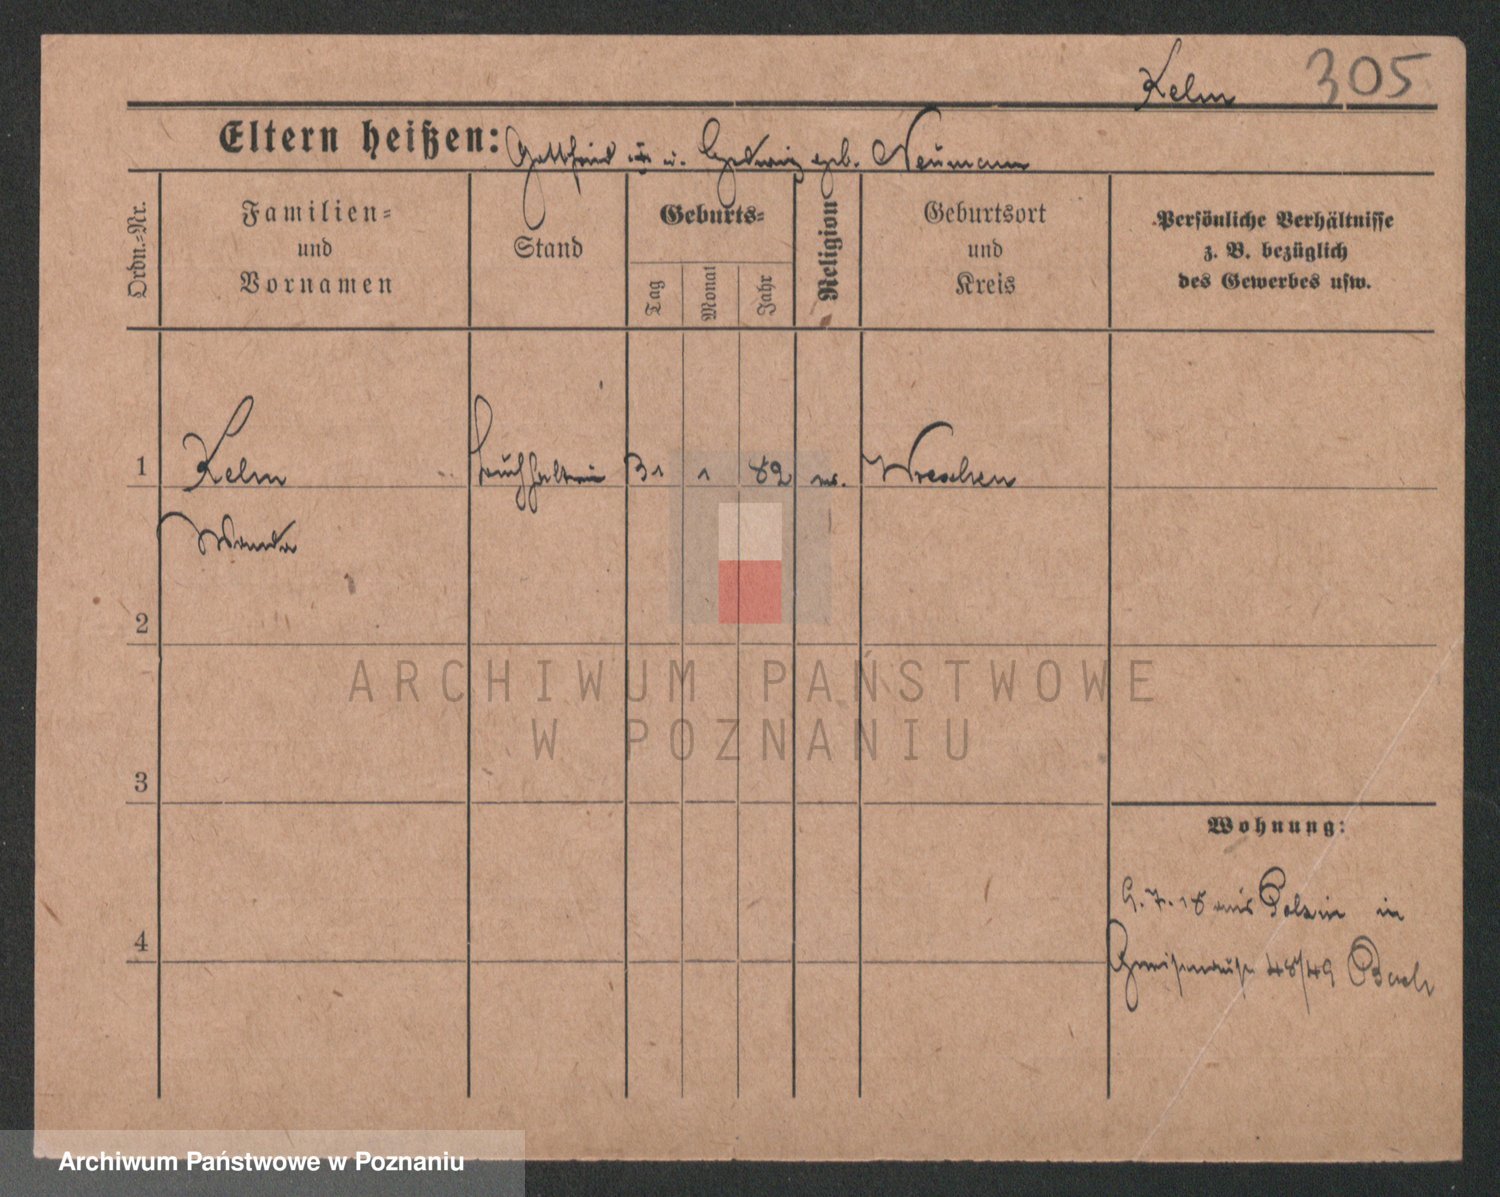 Kelm 305
Eltern heißen: Gottfried u. Hedwig geb. Neumann
Ordn.-Nr.
Familien-
und
Vornamen
Stand
Geburts-
Tag
Monat
Jahr
Religion
Geburtsort
und
Kreis
Persönliche Verhältnisse
z. B. bezüglich
des Gewerbes usw.
1 Kelm Buchhalterin 31 1 82 Wreschen
Wanda
2
ARCHIWUM PAŃSTWOWE
W POZNANIU
3
Wohnung:
9.7.18 aus Polzin in
Gneisenaustr 48/49
4
Archiwum Państwowe w Poznaniu